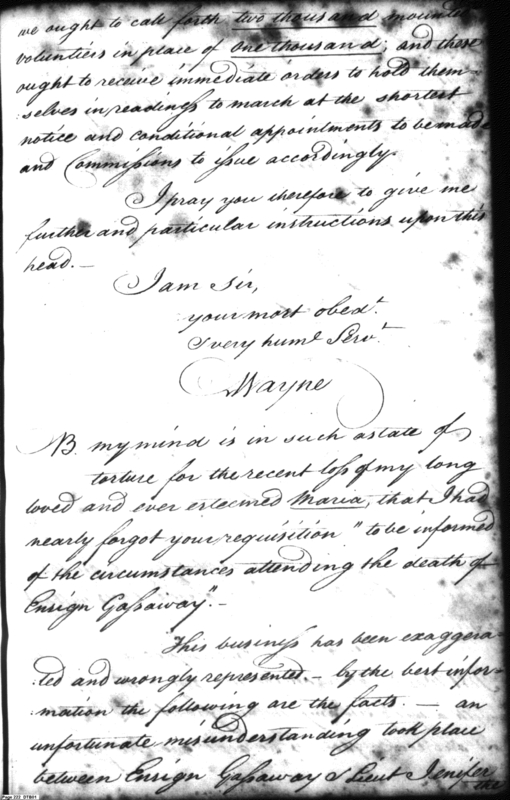 we ought to call forth two thousand mounted
volunteers in place of one thousand; and those
ought to receive immediate orders to hold them=
:selves in readiness to march at the shortest
notice and conditional appointments to be made
and Commissions to issue accordingly.
I pray you therefore to give me
further and particular instructions upon this
head.—
I am Sir,
your most obedt.
& very huml Servt.
Wayne
NB. my mind is in such a state of
torture for the recent loss of my long
loved and ever esteemed Maria, that I had
nearly forgot your requisition "to be informed
of the circumstances attending the death of
Ensign Gassaway".—
This business has been exaggera-
:ted and wrongly represented.— by the best infor-
:mation the following are the facts.— an
unfortunate misunderstanding took place
between Ensign Gassaway & Lieut Jenifer
the
Page 222 DTB01